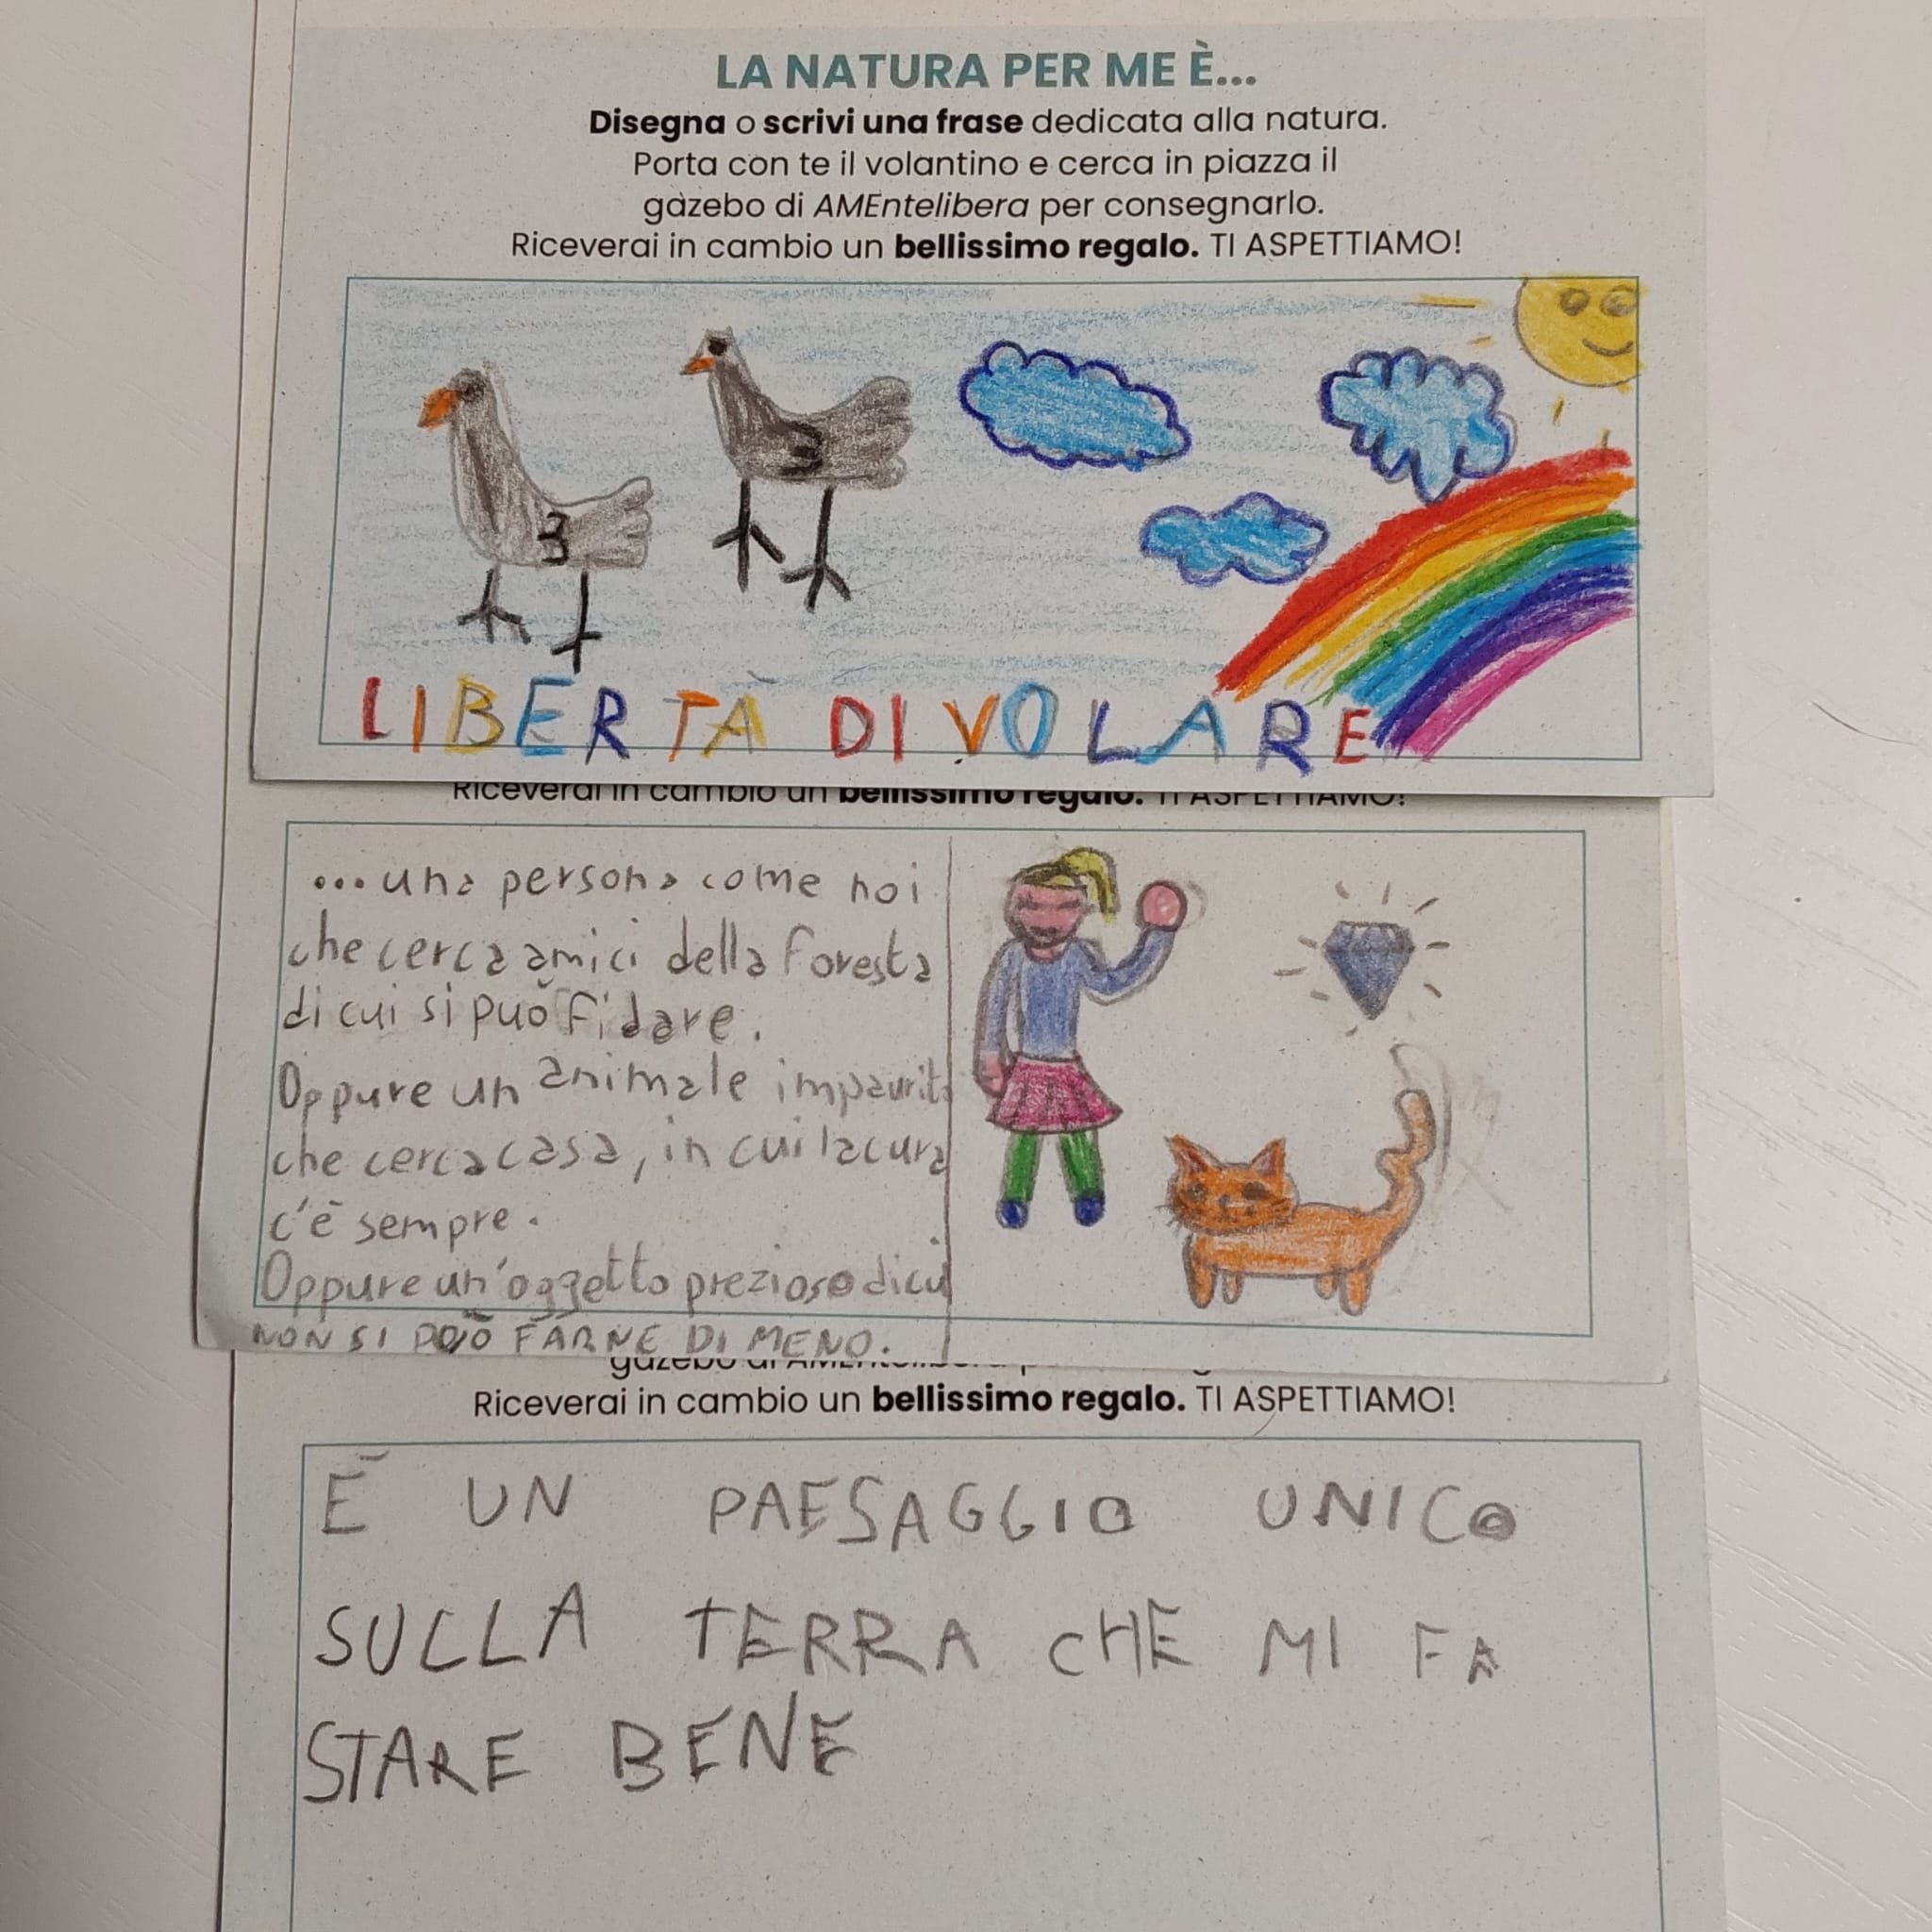 LA NATURA PER ME È...
Disegna o scrivi una frase dedicata alla natura.
Porta con te il volantino e cerca in piazza il
gazebo di AMEntelibera per consegnarlo.
Riceverai in cambio un bellissimo regalo. TI ASPETTIAMO!
3
3
LIBERTÀ DI VOLARE
Riceverai in cambio un bellissimo regalo. TI ASPETTIAMO!
...una persona come noi
che cerca amici della foresta
di cui si può fidare.
Oppure un animale impaurito
che cerca casa, in cui la cura
c'è sempre.
Oppure un'oggetto prezioso di cui
NON SI PUÒ FARNE DI MENO.
gazebo di
Riceverai in cambio un bellissimo regalo. TI ASPETTIAMO!
È UN PAESAGGIO UNICO
SULLA TERRA CHE MI FA
STARE BENE